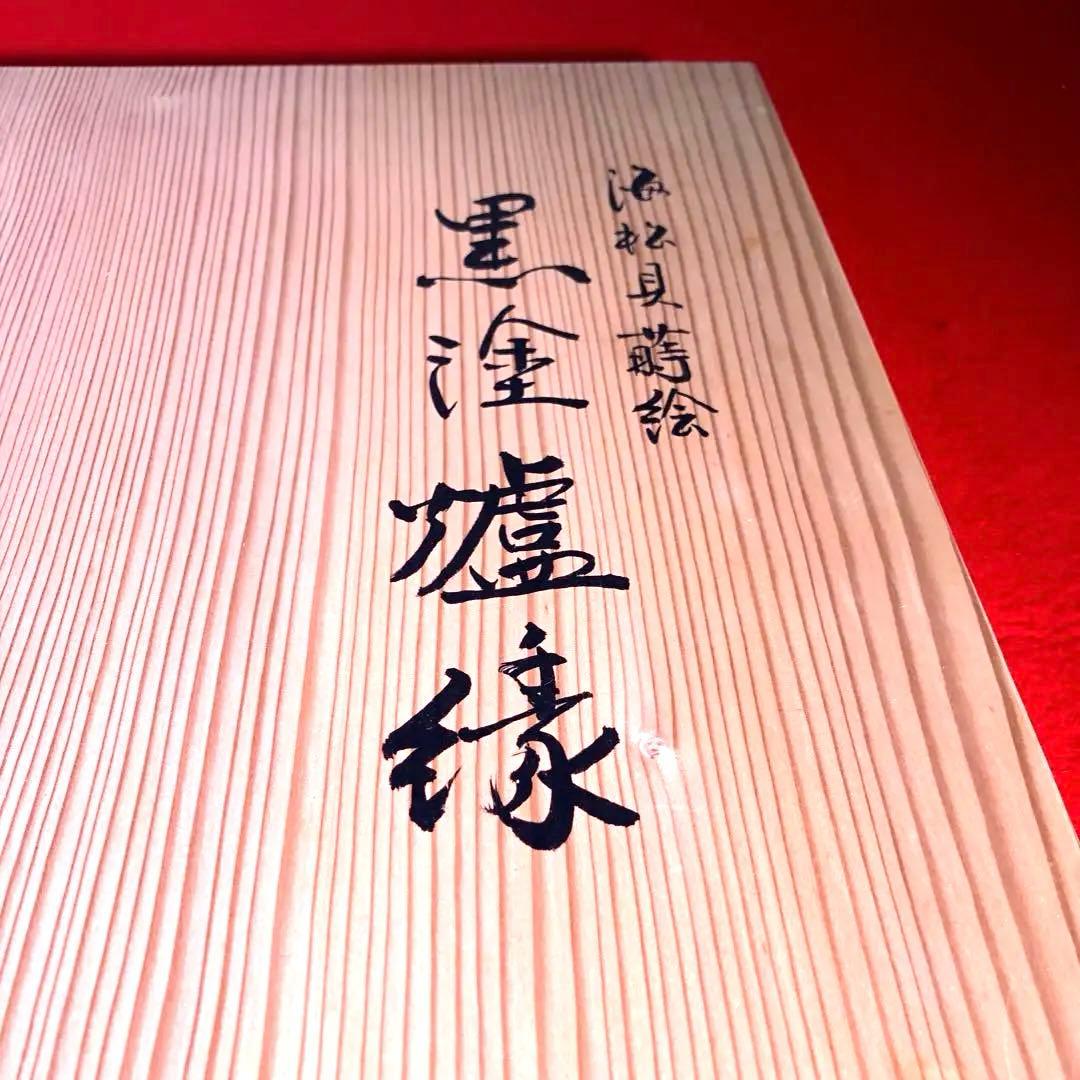 海松貝蒔絵
黒塗爐縁